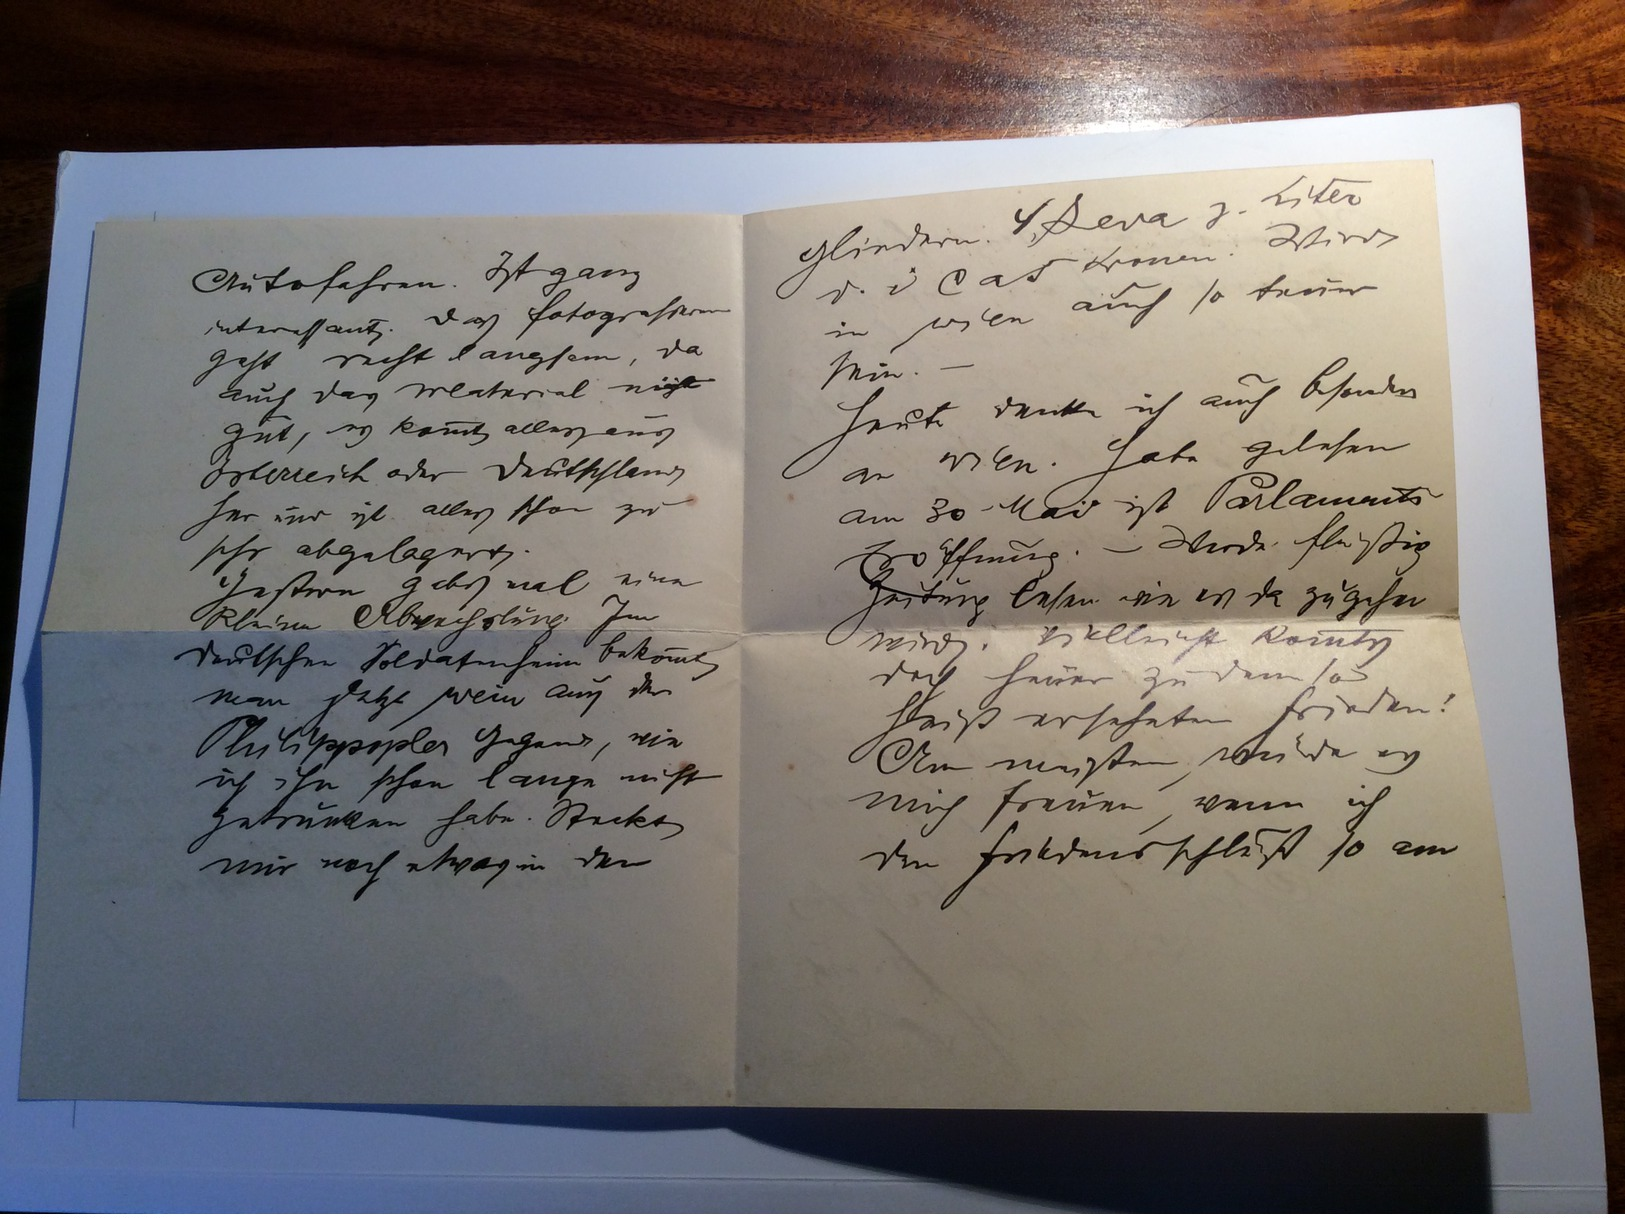 Autofahren. Ist ganz
interessant. Das fotografieren
geht recht langsam, da
auch das Material nicht
gut, es kom̄t alles aus
Österreich oder Deutschland
her und ist alles schon zu
sehr abgelagert.
Gestern gabs mal eine
kleine Abwechslung. Im
deutschen Soldatenheim bekom̄t
man jetzt Wein aus der
Philippopler Gegend, wie
ich ihn schon lange nicht
getrunken habe. Steckt
mir noch etwas in den
Gliedern. 4 Leva p. Liter
d. i Kronen. Wird
in Wien auch so teuer
sein. —
Heute denke ich auch besonders
an Wien. Habe gelesen
am 30 Mai ist Parlaments
Eröffnung. — Werde fleißig
Zeitung lesen wie es da zugehen
wird. Vielleicht kom̄ts
doch heuer zu dem so
heiß ersehnten Frieden!
Am meisten würde es
mich freuen, wenn ich
den Friedensschluß so am